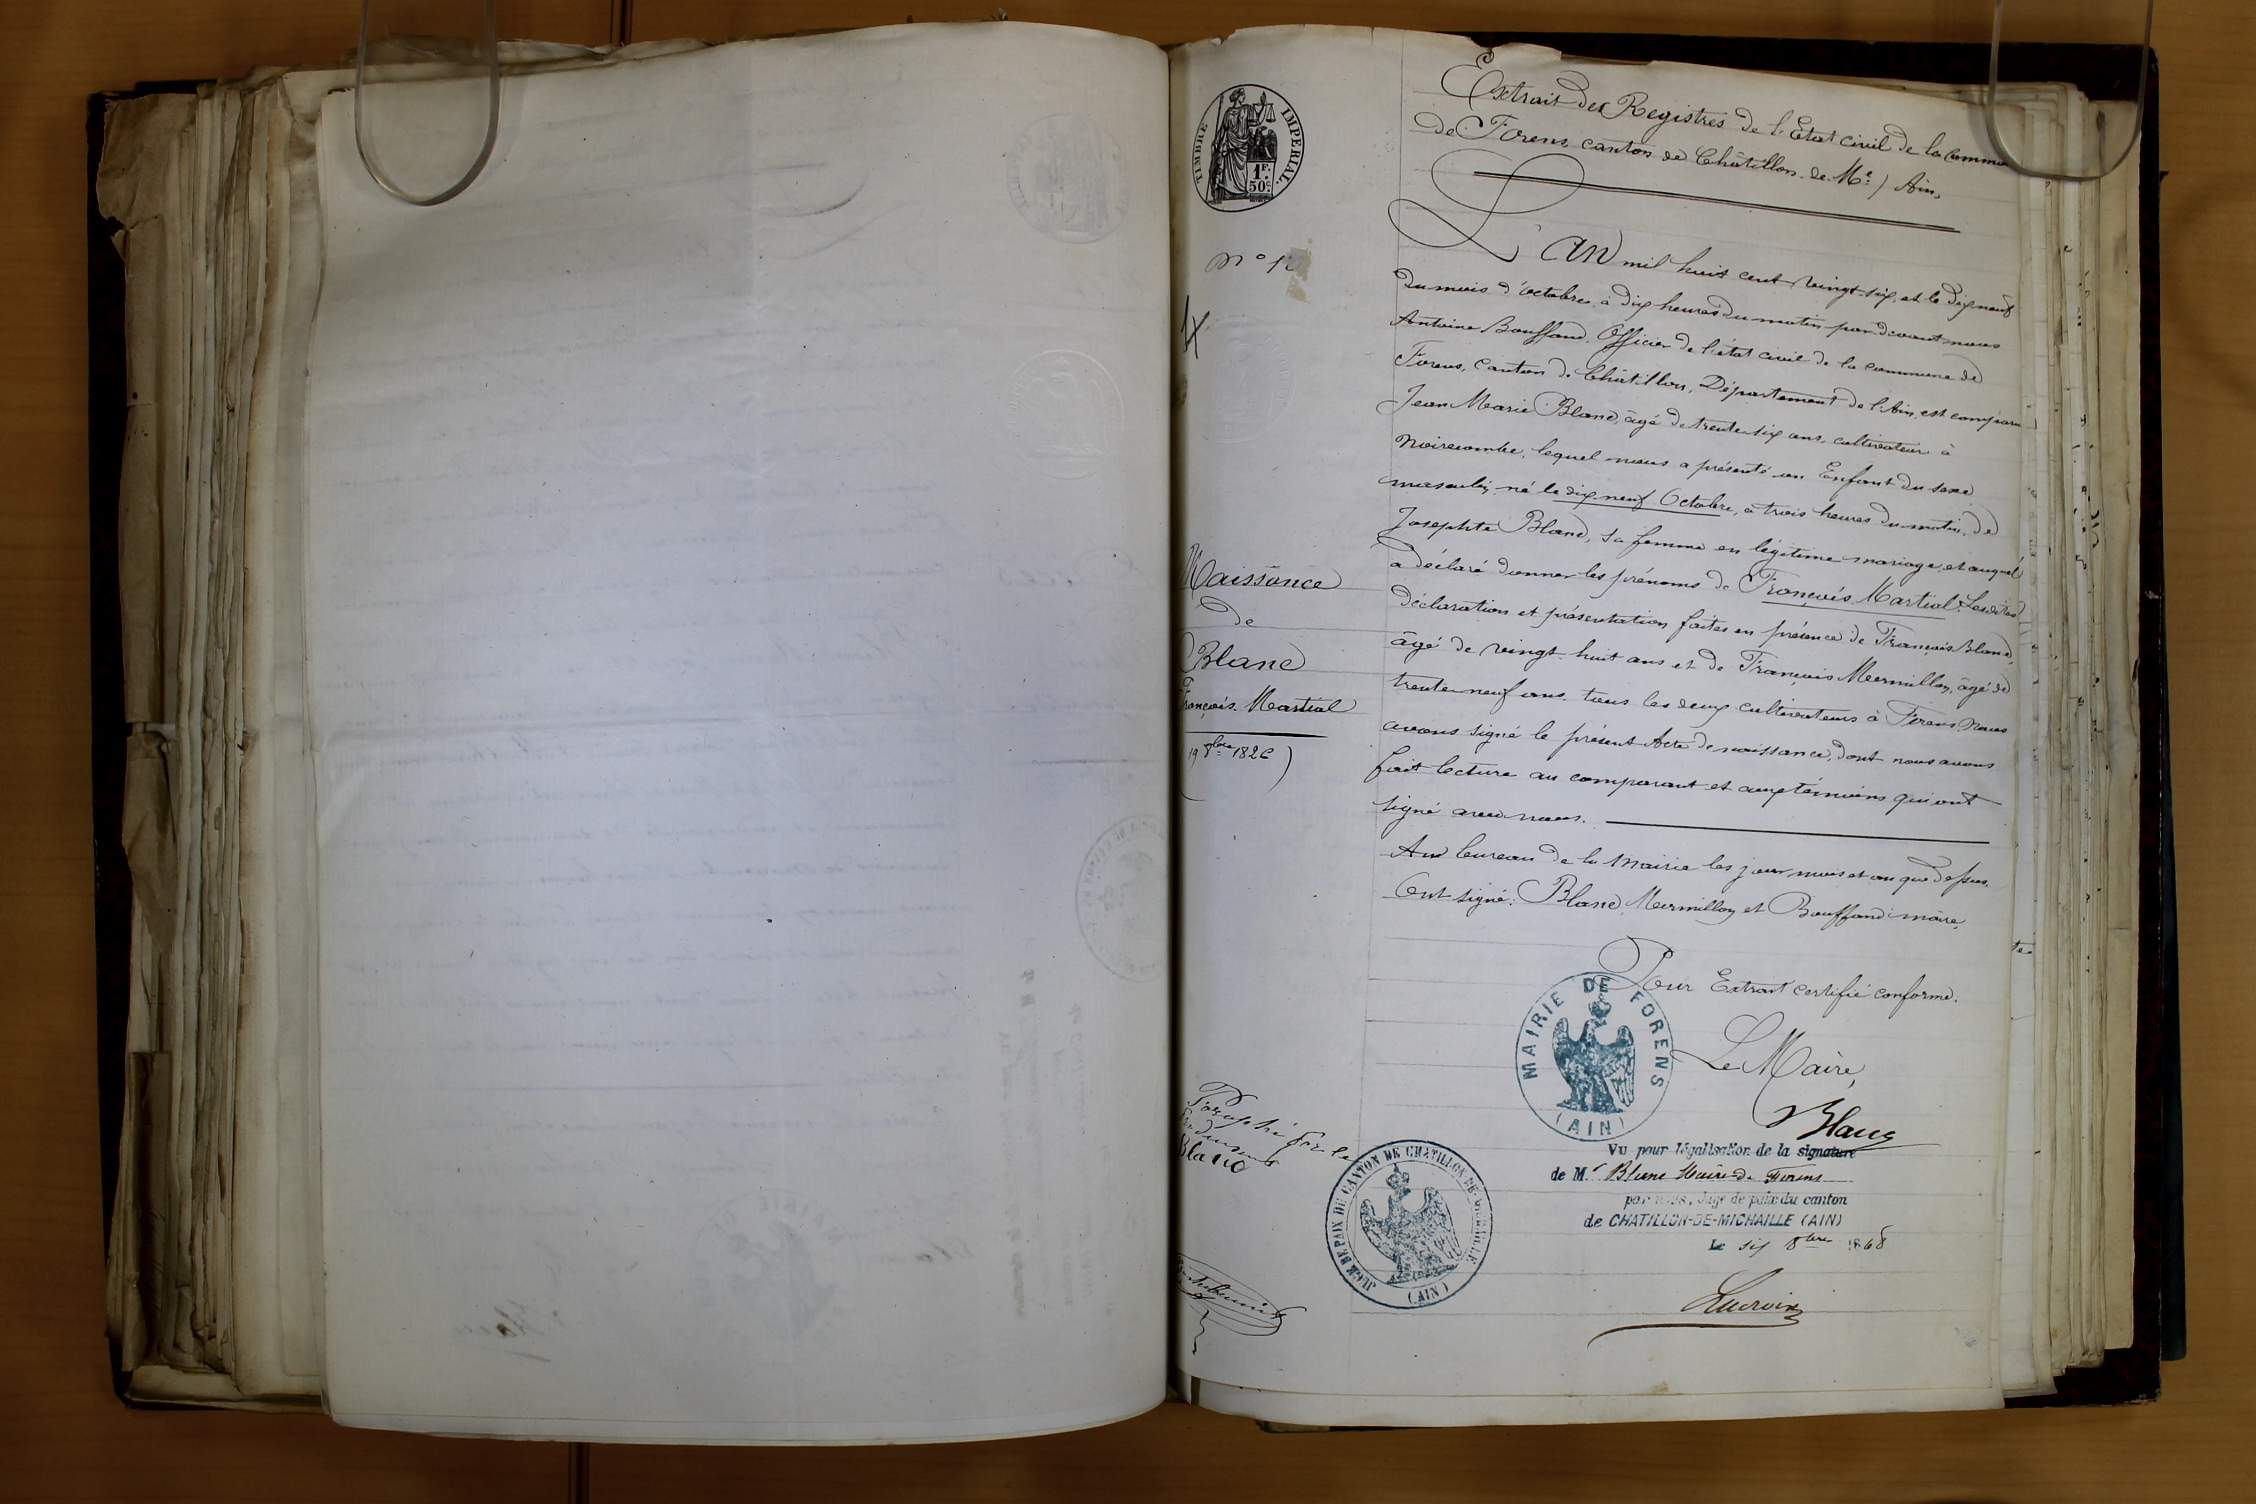 TIMBRE IMPERIAL.
1F. 50c.
Extrait des Registres de l'Etat civil de la Commune
de Forens, canton de Châtillon de Me) Ain,
L'AN mil huit cent vingt-six, et le dix neuf
du mois d'octobre, à dix heures du matin par devant nous
Antoine Bouffand, Officier de l'état civil de la commune de
Forens, Canton de Châtillon, Département de l'Ain, est comparu
Jean Marie Blanc, âgé de trente six ans, cultivateur à
Noirecombe, lequel nous a présenté un Enfant du sexe
masculin, né le dix neuf Octobre, à trois heures du matin, de
Josephte Blanc, sa femme en légitime mariage, et auquel
a déclaré donner les prénoms de François Martial. Lesdites
déclaration et présentation faites en présence de François Blanc,
âgé de vingt-huit ans et de François Mermillon, âgé de
trente-neuf ans, tous les deux cultivateurs à Forens. Nous
avons signé le présent Acte de naissance, dont nous avons
fait lecture au comparant et aux témoins qui ont
signé avec nous.
Au bureau de la Mairie les jour mois et an que dessus.
Ont signé: Blanc, Mermillon et Bouffand maire,
Pour Extrait certifié conforme.
Le Maire,
Blanc
MAIRIE DE FORENS
(AIN)
Vu pour légalisation de la signature
de Mr Blanc Maire de Forens
par nous, Juge de paix du canton
de CHATILLON-DE-MICHAILLE (AIN)
Le six 8bre 1868
JUGE DE PAIX DE CANTON DE CHATILLON-DE-MICHAILLE
(AIN)
No
Naissance
de
Blanc
François Martial
(19 8bre 1826)
Paraphé par le
Blanc
te